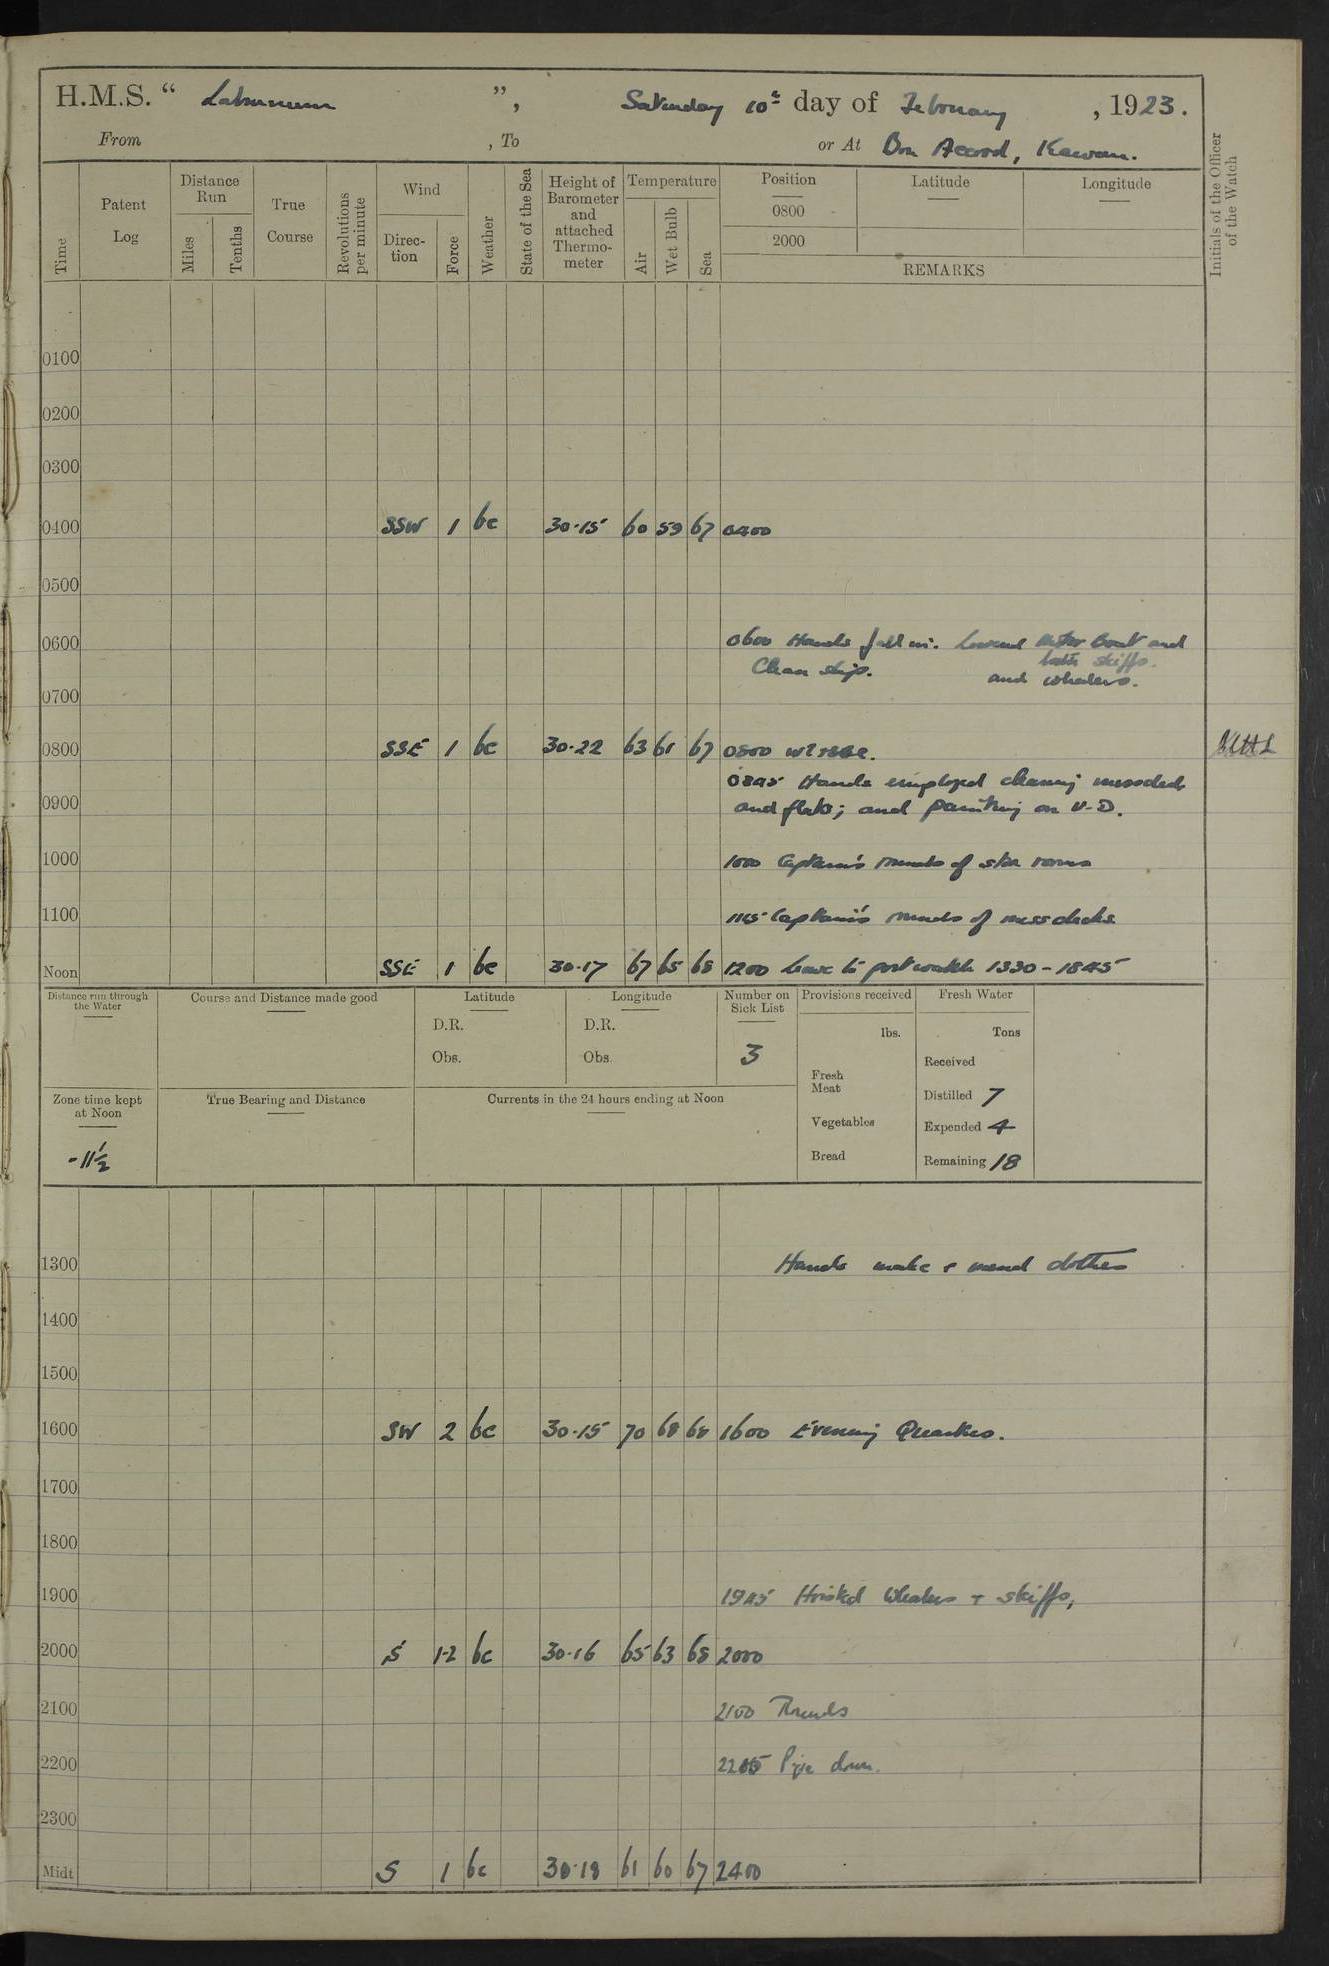 H.M.S. " Laburnum ", Saturday 10th day of February, 1923.
From , To or At Bon Accord, Kawau.
Time
Patent Log
Distance Run
Miles
Tenths
True Course
Revolutions per minute
Wind
Direc-tion
Force
Weather
State of the Sea
Height of Barometer and attached Thermo-meter
Temperature
Air
Wet Bulb
Sea
Position
0800
2000
Latitude
Longitude
REMARKS
Initials of the Officer of the Watch
0100
0200
0300
0400 SSW 1 bc 30.15 60 59 67 0400
0500
0600 0600 Hands fall in. Lowered Motor Boat and
both skiffs.
Clean ship. and whalers.
0700
0800 SSE 1 bc 30.22 63 61 67 0800
0845 Hands employed cleaning messdeck
0900 and flats; and painting on U.D.
1000 1000 Captain's rounds of store rooms
1100 1115 Captain's rounds of messdecks
Noon SSE 1 bc 30.17 67 65 68 1200 Leave to port watch 1330 - 1845
Distance run through the Water
Course and Distance made good
Latitude
D.R.
Obs.
Longitude
D.R.
Obs.
Number on Sick List
3
Provisions received
lbs.
Fresh Meat
Vegetables
Bread
Fresh Water
Tons
Received
Distilled 7
Expended 4
Remaining 18
Zone time kept at Noon
-11½
True Bearing and Distance
Currents in the 24 hours ending at Noon
1300 Hands make & mend clothes
1400
1500
1600 SW 2 bc 30.15 70 68 68 1600 Evening Quarters.
1700
1800
1900 1945 Hoisted Whalers + skiffs,
2000 S 1-2 bc 30.16 65 63 68 2000
2100 2100 Rounds
2200 Pipe down.
2300
Midt S 1 bc 30.18 61 60 67 2400